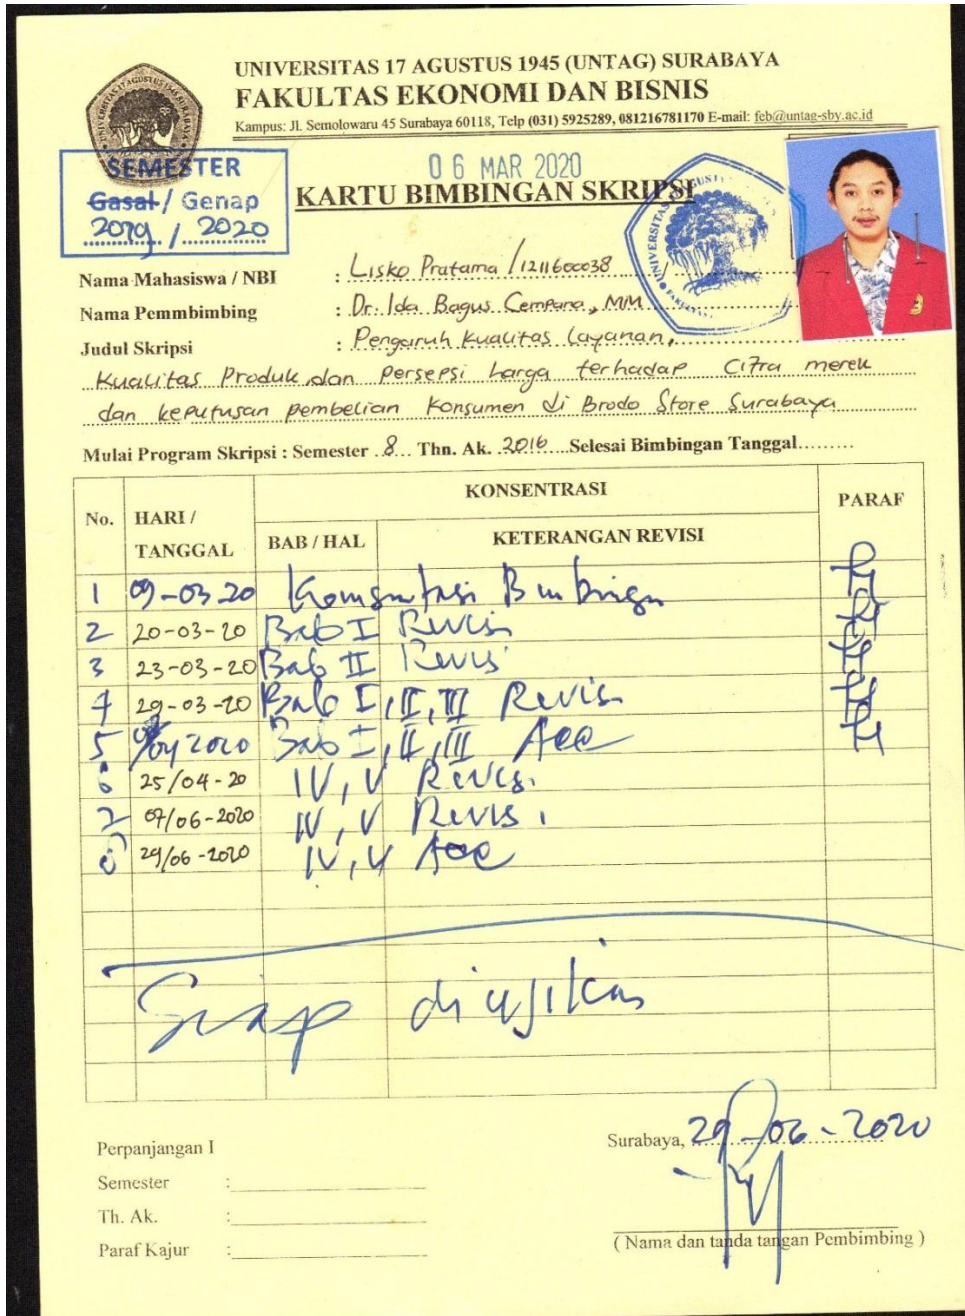 UNIVERSITAS 17 AGUSTUS 1945 (UNTAG) SURABAYA
FAKULTAS EKONOMI DAN BISNIS
Kampus: Jl. Semolowaru 45 Surabaya 60118, Telp (031) 5925289, 081216781170 E-mail: feb@untag-sby.ac.id
SEMESTER
Gasal / Genap
2019 / 2020
06 MAR 2020
KARTU BIMBINGAN SKRIPSI
Nama Mahasiswa / NBI : Lisko Pratama / 1211600038
Nama Pemmbimbing : Dr. Ida Bagus Cempana, MM
Judul Skripsi : Pengaruh Kualitas Layanan,
Kualitas Produk, dan Persepsi harga terhadap Citra merek
dan keputusan pembelian Konsumen di Brodo Store Surabaya
Mulai Program Skripsi : Semester 8 Thn. Ak. 2016 Selesai Bimbingan Tanggal.........
No. HARI / TANGGAL KONSENTRASI PARAF
BAB / HAL KETERANGAN REVISI
1 09-03-20 Bimbingan
2 20-03-20 Bab I Revisi
3 23-03-20 Bab II Revisi
4 29-03-20 Bab I, II, III Revisi
5 /04 2020 Bab I, II, III Acc
6 25/04-20 IV, V Revisi
7 07/06-2020 IV, V Revisi
8 29/06-2020 IV, V Acc
Siap diujikan
Surabaya, 29-06-2020
Perpanjangan I
Semester :
Th. Ak. :
Paraf Kajur :
( Nama dan tanda tangan Pembimbing )